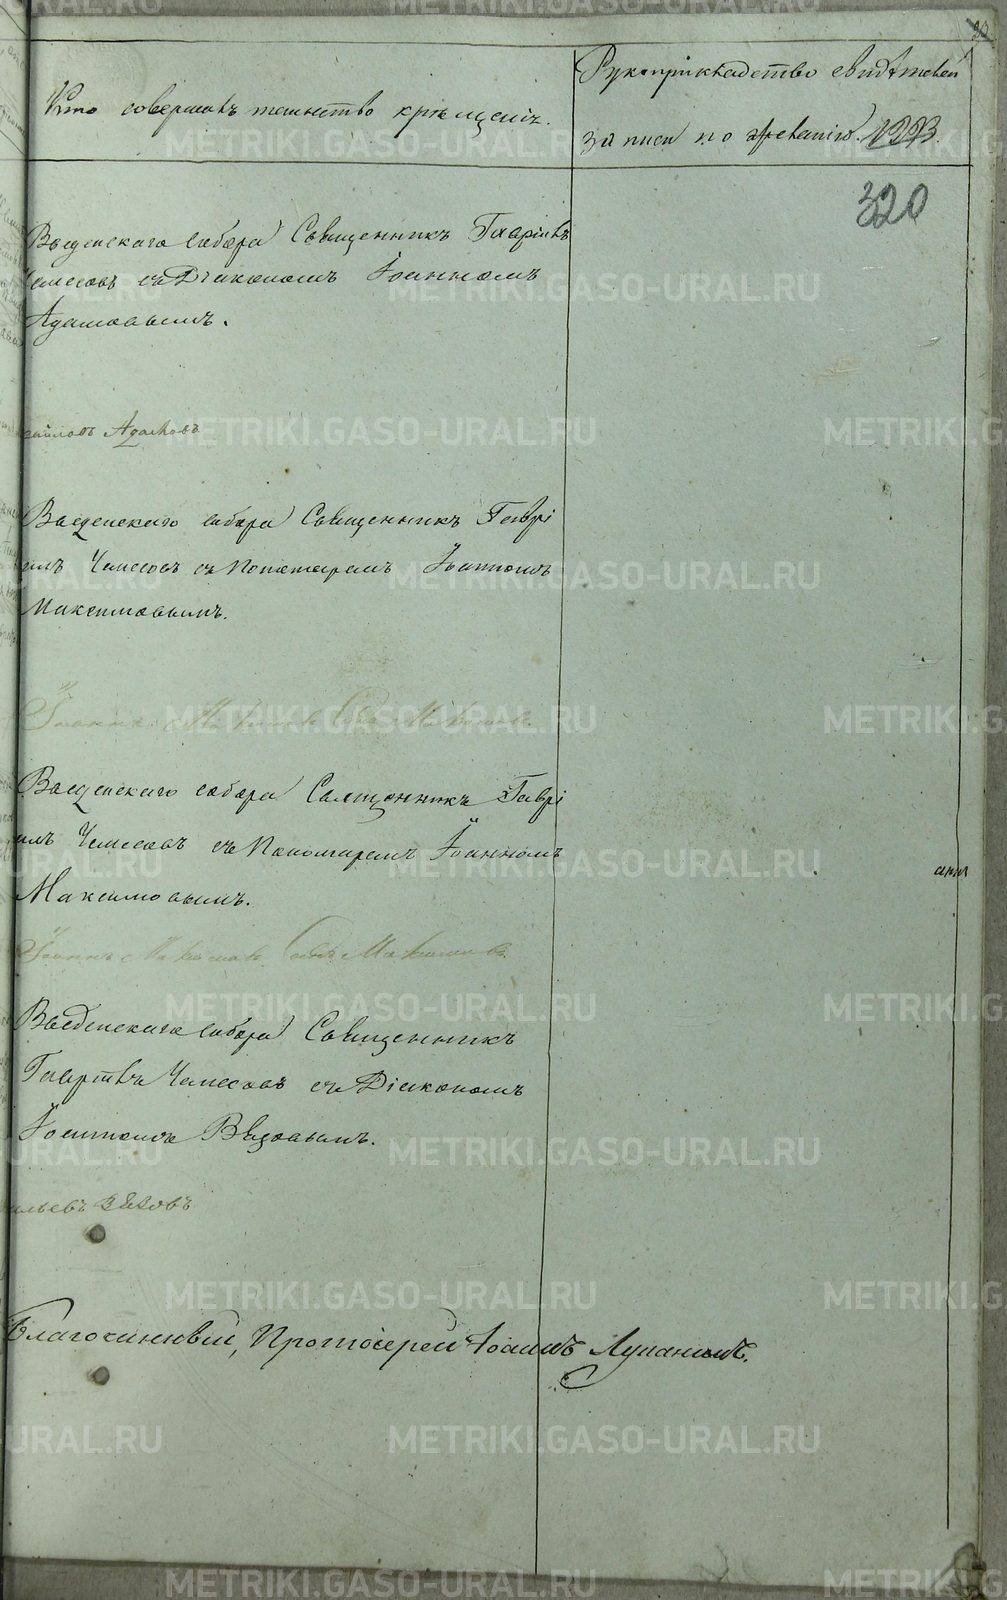 Кто совершалъ таинство крещенія.
Рукоприкладство свидѣтелей
записи по желанію. 1223
320
Введенскаго собора Священникъ Гавріилъ
Чемесовъ съ Діакономъ Іоанномъ
Адамовымъ.
Адамовъ
Введенскаго собора Священникъ Гаврі
илъ Чемесовъ съ Пономаремъ Іоанномъ
Максимовымъ.
Іоаннъ Максимовъ
Введенскаго собора Священникъ Гаврі
илъ Чемесовъ съ Пономаремъ Іоанномъ
Максимовымъ.
Іоаннъ Максимовъ
Введенскаго собора Священникъ
Гавріилъ Чемесовъ съ Діакономъ
Іоанномъ Вѣдовымъ.
Благочинный, Протоіерей Іоаннъ Лупанинъ.
METRIKI.GASO-URAL.RU